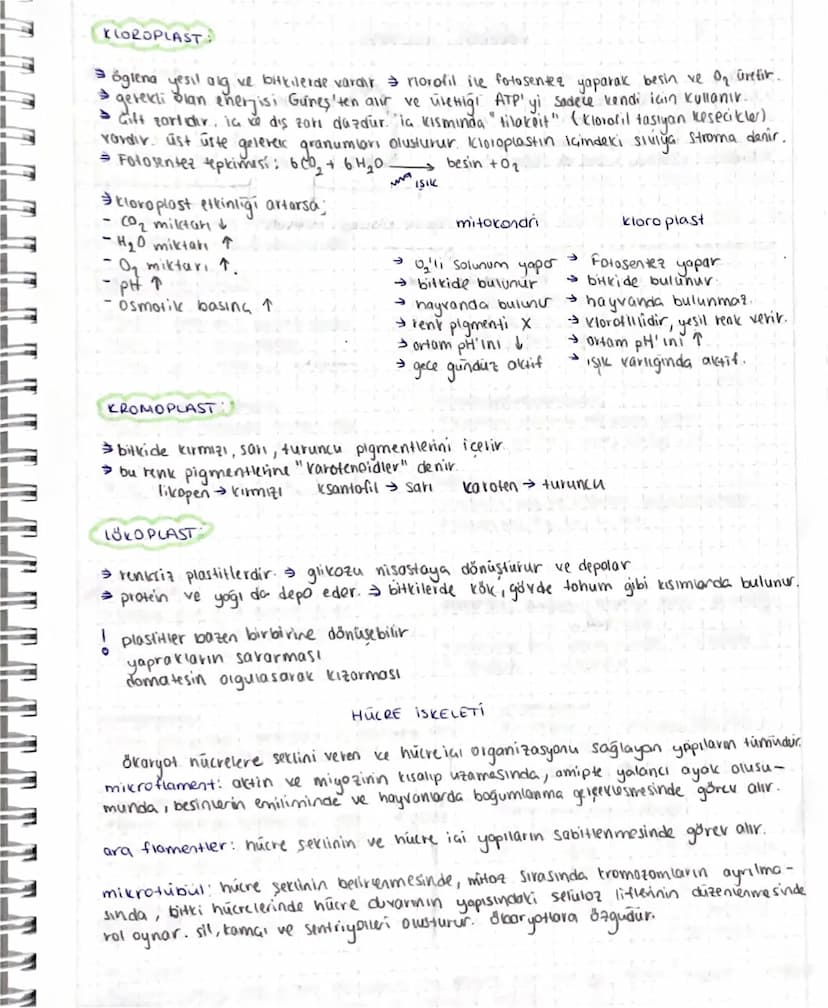 KLOROPLAST:
→ öglena yeşil alg ve bitkilerde vardır. → klorofil ile fotosentez yaparak besin ve O₂ üretir.
→ gerekli olan enerjisi Güneş'ten alır ve ürettiği ATP'yi sadece kendi için kullanır.
→ Çift zarlıdır, iç ve dış zarı düzdür. iç kısmında "tilakoit" (klorofil taşıyan kesecikler)
vardır. üst üste gelerek granumları oluşturur. kloroplastın içimdeki sıvıya stroma denir.
→ Fotosentez tepkimesi: 6CO₂ + 6H₂O → besin + O₂
ışık
→ kloroplast etkinliği artarsa;
- CO₂ miktarı ↓
- H₂O miktarı ↑
- O₂ miktarı ↑.
- pH ↑
- osmotik basınç ↑
mitokondri kloroplast
→ O₂'li solunum yapar → Fotosentez yapar
→ bitkide bulunur → bitkide bulunur.
→ hayvanda bulunur → hayvanda bulunmaz.
→ renk pigmenti X → klorofillidir, yeşil renk verir.
→ ortam pH'ını ↓ → ortam pH'ını ↑
→ gece gündüz aktif → ışık varlığında aktif.
KROMOPLAST:
→ bitkide kırmızı, sarı, turuncu pigmentlerini içerir.
→ bu renk pigmentlerine "karotenoidler" denir.
likopen → kırmızı ksantofil → sarı karoten → turuncu
LÖKOPLAST:
→ renksiz plastitlerdir. → glikozu nişastaya dönüştürür ve depolar
→ protein ve yağı da depo eder. → bitkilerde kök, gövde tohum gibi kısımlarda bulunur.
! plastitler bazen birbirine dönüşebilir
yaprakların sararması
domatesin olgulaşarak kızarması
HÜCRE İSKELETİ
Ökaryot hücrelere şeklini veren ve hücreiçi organizasyonu sağlayan yapıların tümüdür.
mikroflament: aktin ve miyozinin kısalıp uzamasında, amipte yalancı ayak oluşu-
munda, besinlerin emiliminde ve hayvanlarda boğumlanma gerçekleşmesinde görev alır.
ara flamentler: hücre şeklinin ve hücre içi yapıların sabitlenmesinde görev alır.
mikrotübül: hücre şeklinin belirlenmesinde, mitoz sırasında kromozomların ayrılma-
sında, bitki hücrelerinde hücre duvarının yapısındaki selüloz liflerinin düzenlenmesinde
rol oynar. sil, kamçı ve sentriyolleri oluşturur. Ökaryotlara özgüdür.